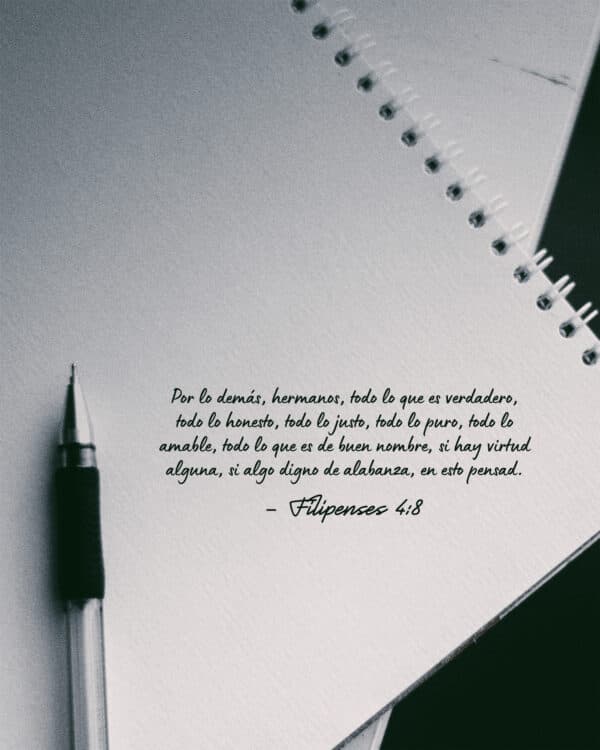 Por lo demás, hermanos, todo lo que es verdadero,
todo lo honesto, todo lo justo, todo lo puro, todo lo
amable, todo lo que es de buen nombre, si hay virtud
alguna, si algo digno de alabanza, en esto pensad.
– Filipenses 4:8